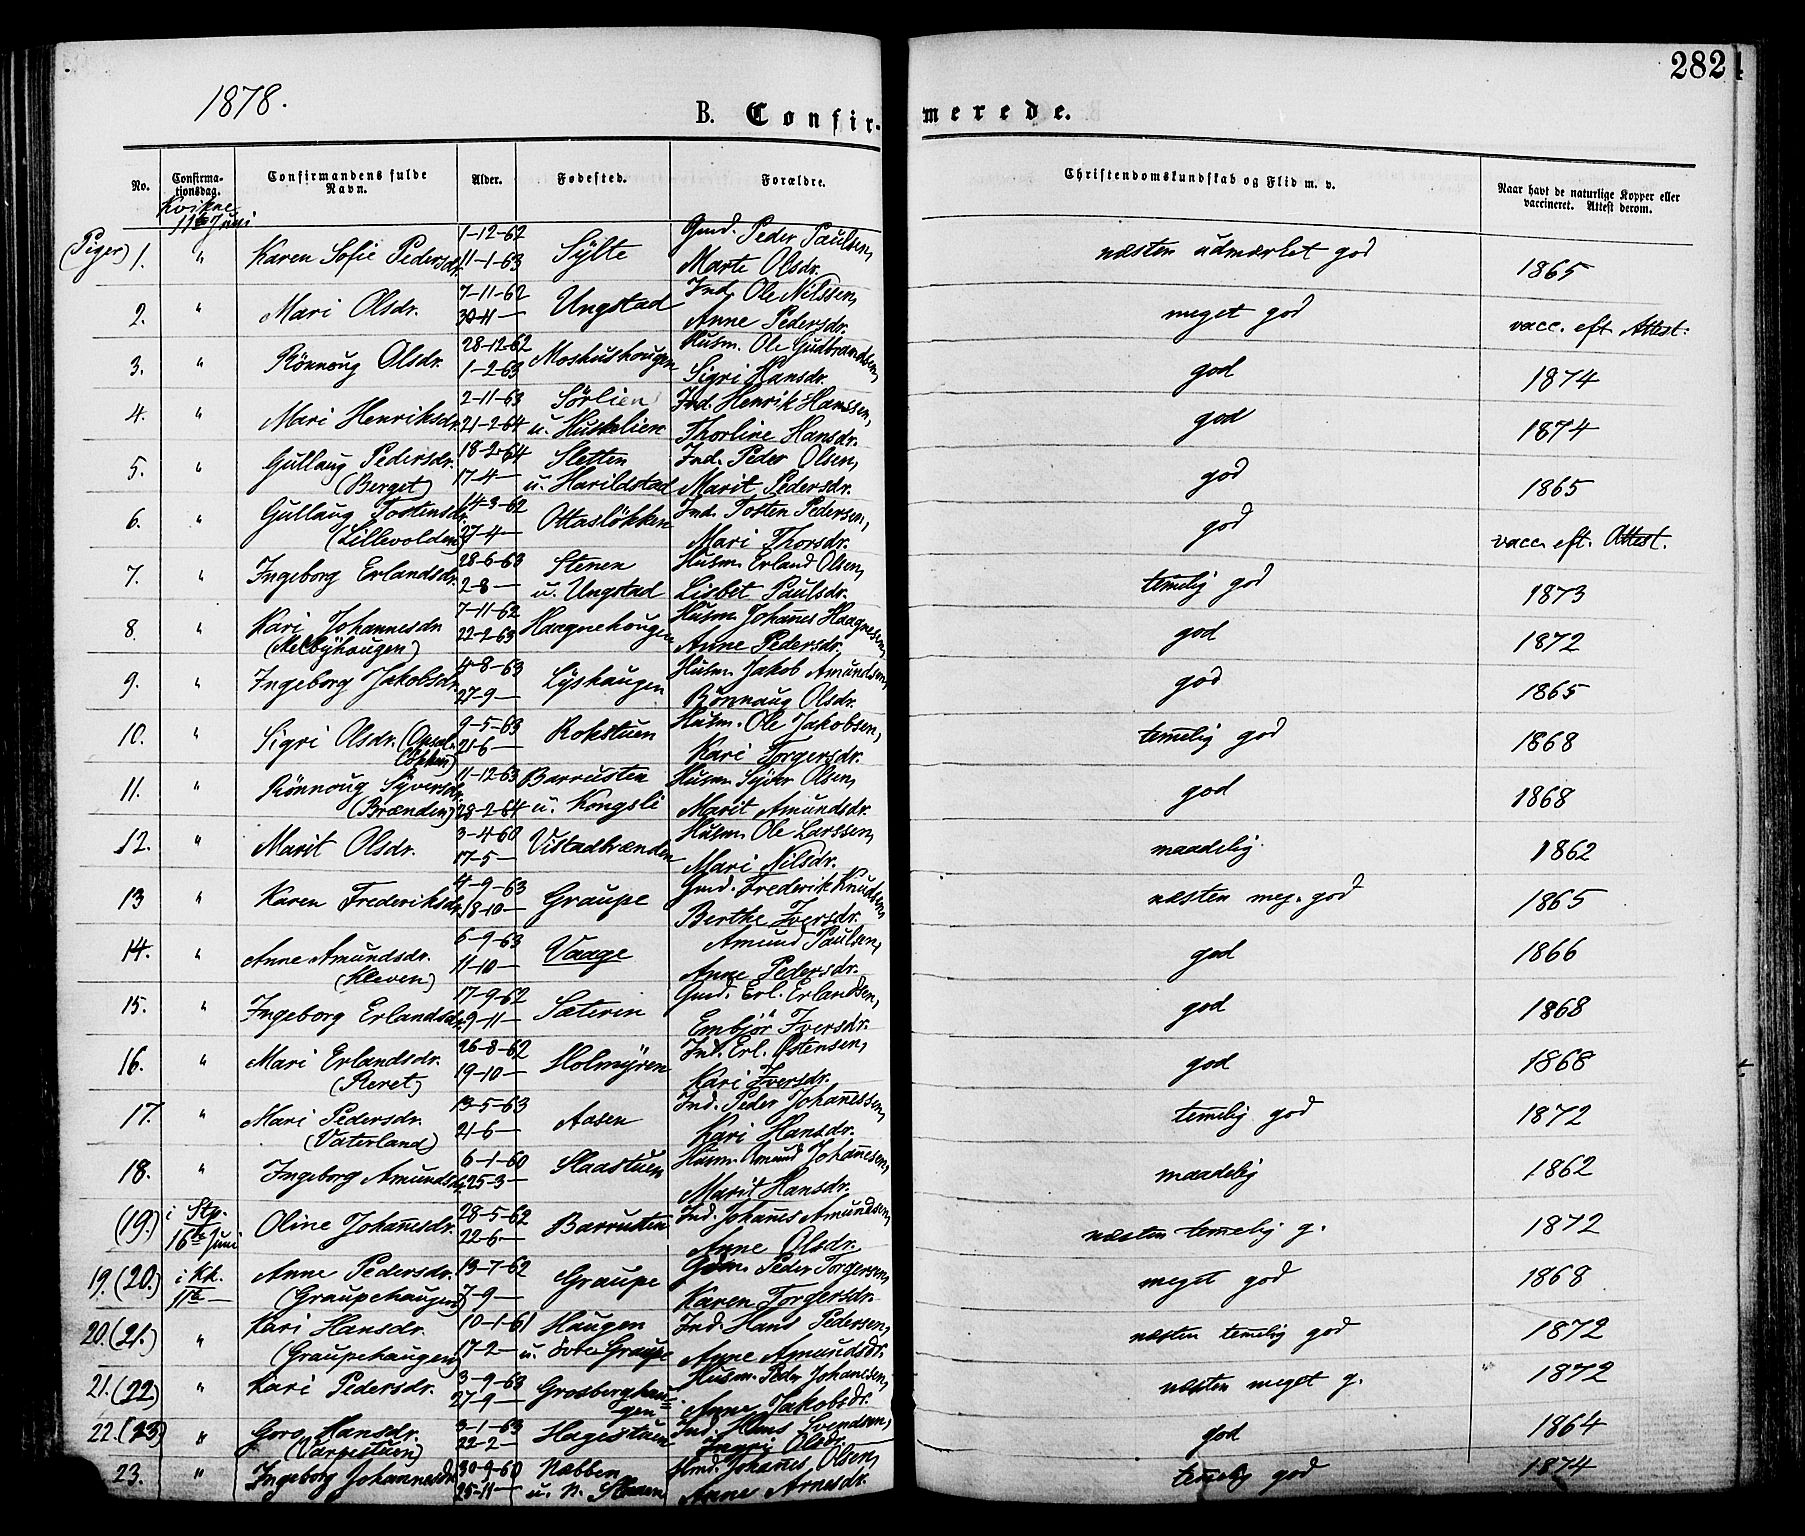 282
1878.
B. Confir- merede.
No. Confirma-tionsdag. Confirmandens fulde Navn. Alder. Fødested. Forældre. Christendomskundskab og Flid m. v. Naar havt de naturlige Kopper eller vaccineret. Attest derom.
Kvikne
11te Juni
(Piger) 1. " Karen Sofie Pedersdr. 1-12-62 11-1-63 Sylte Gmd. Peder Paulsen, Marte Olsdr. næsten udmærket god 1865
2. " Mari Olsdr. 7-11-62 30-11- Ungstad Ind. Ole Nilssen, Anne Pedersdr. meget god vacc. eft. Attest.
3. " Rönnoug Olsdr. 28-12-62 1-2-63 Moshushougen Husm. Ole Gudbrandsen, Sigri Hansdr. god 1874
4. " Mari Henriksdr. 2-11-63 21-2-64 Sørlien u. Huskelien Ind. Henrik Hanssen, Thorline Hansdr. god 1874
5. " Gullaug Pedersdr. (Berget) 18-2-64 17-4- Sletten u. Harildstad Ind. Peder Olsen, Marit Pedersdr. god 1865
6. " Gullaug Tostensdr. (Lillevolden) 14-3-62 27-4- Ottasløkken Ind. Tosten Pedersen, Mari Thorsdr. god vacc. eft. Attest.
7. " Ingeborg Erlandsdr. 28-6-63 2-8- Stenen u. Ungstad Husm. Erland Olsen, Lisbet Paulsdr. temelig god 1873
8. " Kari Johannesdr. (Melbyhougen) 7-11-62 22-2-63 Haagnehougen Husm. Johañes Haagnesen, Anne Pedersdr. god 1872
9. " Ingeborg Jakobsdr. 4-8-63 27-9- Lyshaugen Husm. Jakob Amundsen, Rønnaug Olsdr. god 1865
10. " Sigri Olsdr. 9-5-63 21-6- Rokstuen Husm. Ole Jakobsen, Kari Torgersdr. temelig god 1868
11. " Rönnoug Syversdr. (Brænden) 11-12-63 28-2-64 Barrusten u. Kongsli Husm. Syver Olsen, Marit Amundsdr. god 1868
12. " Marit Olsdr. 3-4-60 17-5- Vistadbrænden Husm. Ole Larssen, Mari Nilsdr. maadelig. 1862
13 " Karen Frederiksdr. 4-9-63 18-10- Graupe Gmd. Frederik Knudsen, Berthe Iversdr. næsten meg. god 1865
14. " Anne Amundsdr. (Kleven) 6-9-63 11-10- Vaage Amund Paulsen, Anne Pedersdr. god 1866
15. " Ingeborg Erlandsdr. 17-9-62 9-11- Sæterin Gmd. Erl. Erlandsen, Embjør Iversdr. god 1868
16. " Mari Erlandsdr. 26-8-62 19-10- Holmyren Ind. Erl. Østensen, Kari Iversdr. god 1868
17. " Mari Pedersdr. (Vaterland) 13-5-63 21-6- Aasen Ind. Peder Johañessen, Kari Hansdr. temelig god 1872
18. " Ingeborg Amundsdr. 6-1-60 25-3- Slaastuen Husm. Amund Johañesen, Marit Hansdr. maadelig 1862
(19.) i Stp. 16te Juni Oline Johañesdr. 28-5-62 22-6- Barrusten Ind. Johañes Amundsen, Anne Olsdr. næsten temelig g. 1872
19. (20.) i Kk. 11te - Anne Pedersdr. (Graupehaugen) 13-7-62 7-9- Graupe Peder Torgersen, Karen Torgersdr. meget god 1868
20. (21.) " Kari Hansdr. (Graupehaugen) 10-1-61 17-2- Haugen u. Graupe Ind. Hans Pedersen, Anne Amundsdr. næsten temelig god 1872
21. (22) " Kari Pedersdr. 3-9-63 27-9- Grosberghaugen Husm. Peder Johanesen, Anne Jakobsdr. næsten meget g. 1872
22. (23) " Goro Hansdr. (Varpestuen) 3-1-63 22-2- Hagestuen Ind. Hans Svendsen, Ingri Olsdr. god 1864
23. " Ingeborg Johannesdr. 30-9-60 25-11- Nabben u. n. Steen Johañes Olsen, Anne Arnesdr. temelig god 1874